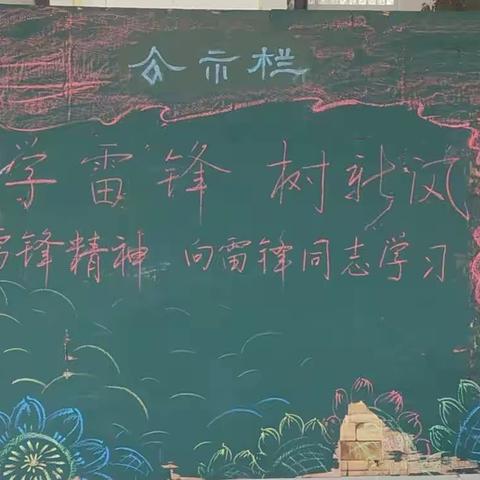 公示栏
学雷锋 树新风
雷锋精神 向雷锋同志学习